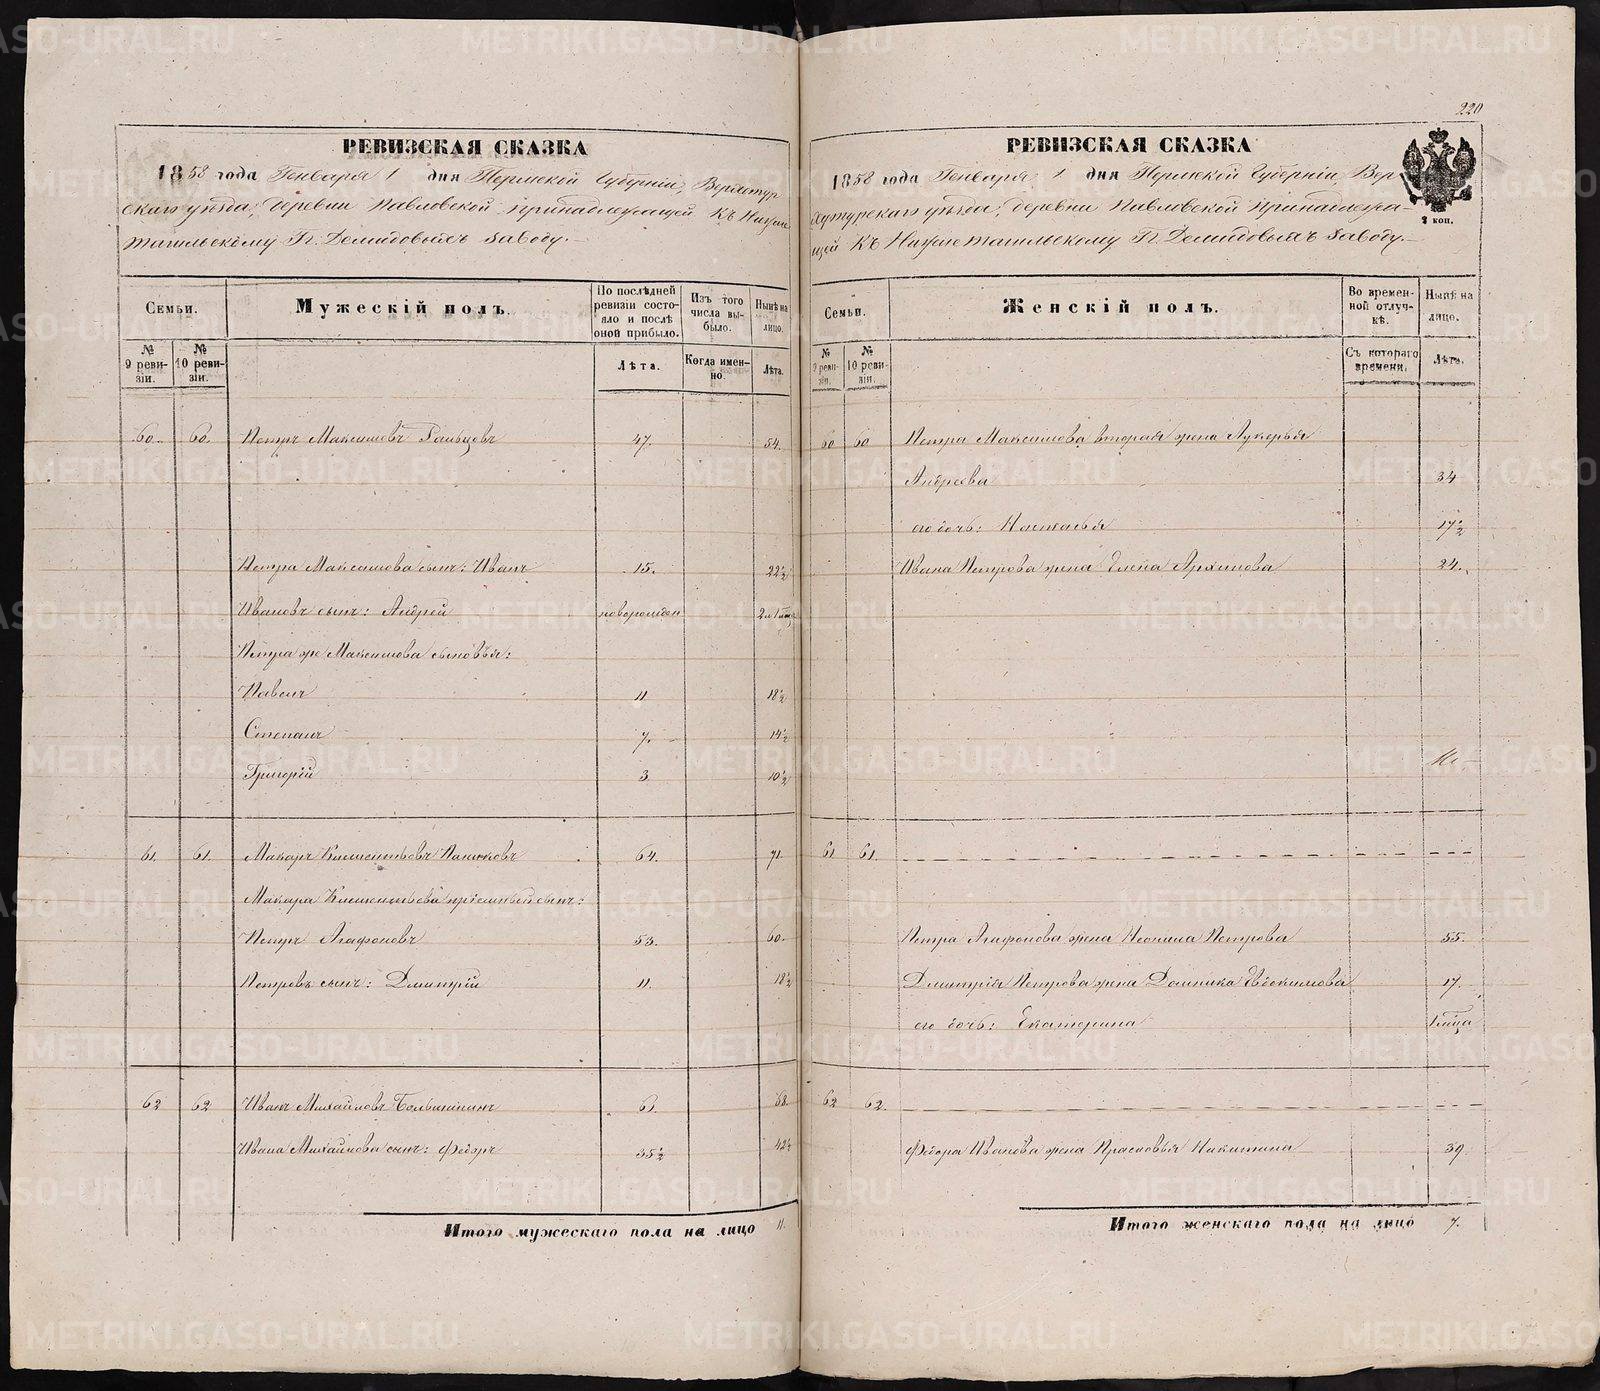 220
РЕВИЗСКАЯ СКАЗКА
1858 года Генваря 1 дня Пермской Губерніи, Верхотур
скаго уѣзда, деревни Павловской принадлежащей къ Нижне
тагильскому Гг. Демидовыхъ заводу.
Семьи.
Мужескій полъ.
По послѣдней ревизіи состояло и послѣ оной прибыло.
Изъ того числа выбыло.
Нынѣ на лицо.
№ 9 ревизіи.
№ 10 ревизіи.
Лѣта.
Когда именно.
Лѣта.
60. 60. Петръ Максимовъ 47. 54.
Петра Максимова сынъ: Иванъ 15. 22½
Ивановъ сынъ: Андрей новорожден
Петра же Максимова сыновья:
Павелъ 11 18½
Степанъ 7. 14½
Григорій 3 10½
61. 61. Макаръ Климентьевъ 64. 71.
Макара Климентьева пріемный сынъ:
Петръ Агафоновъ 53. 60.
Петровъ сынъ: Дмитрій 11. 18½
62 62 Иванъ Михайловъ 61. 68.
Ивана Михайлова сынъ: Федоръ 35½ 42½
Итого мужескаго пола на лицо 11.
РЕВИЗСКАЯ СКАЗКА
1858 года Генваря 1 дня Пермской Губерніи, Вер
хотурскаго уѣзда, деревни Павловской принадлежа-
щей къ Нижнетагильскому Гг. Демидовыхъ заводу.
2 коп.
Семьи.
Женскій полъ.
Во временной отлучкѣ.
Нынѣ на лицо.
№ 9 ревизіи.
№ 10 ревизіи.
Съ котораго времени.
Лѣта.
60 60 Петра Максимова вторая жена Лукерья
Андреева 34
его дочь: Настасья 17½
Ивана Петрова жена Елена Архипова 24.
61 61.
Петра Агафонова жена Петрова 55.
Дмитрія Петрова жена Домника Евдокимова 17.
его дочь: Екатерина
62 62.
Федора Иванова жена Прасковья Никитина 39
Итого женскаго пола на лицо 7.
METRIKI.GASO-URAL.RU